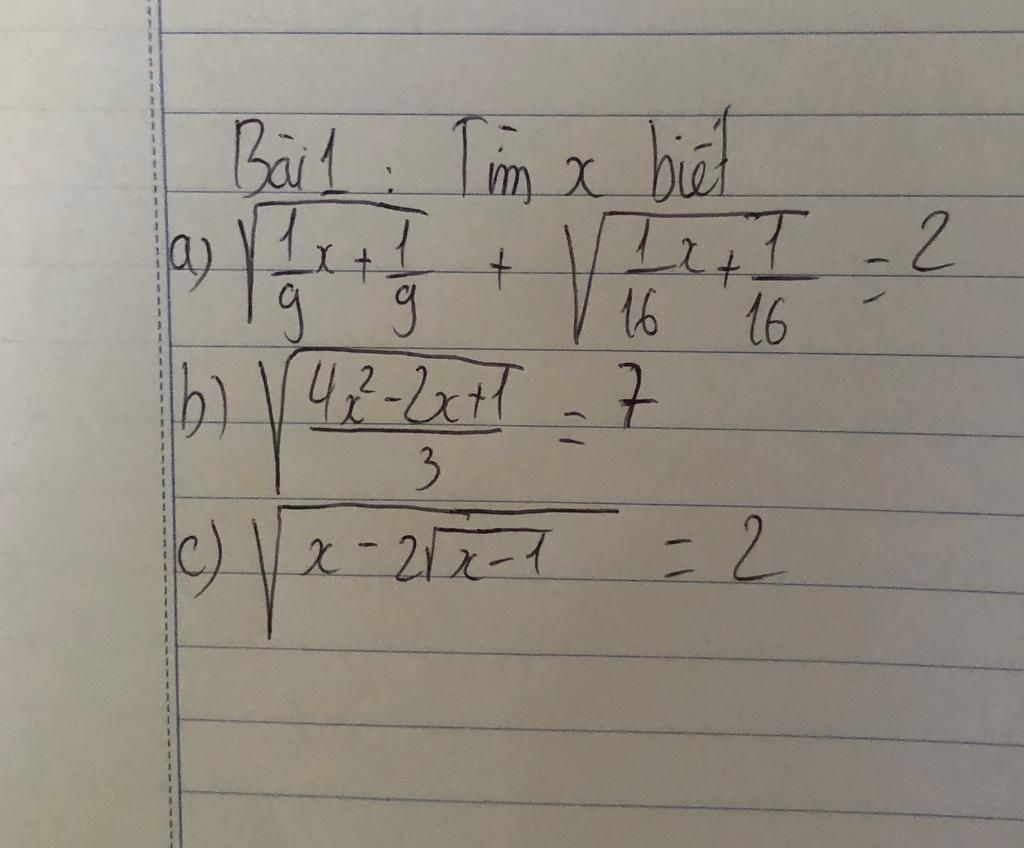 Bài 1 : Tìm x biết
a) √(1/9 x + 1/9) + √(1/16 x + 1/16) = 2
b) √((4x² - 2x + 1)/3) = 7
c) √(x - 2√(x - 1)) = 2